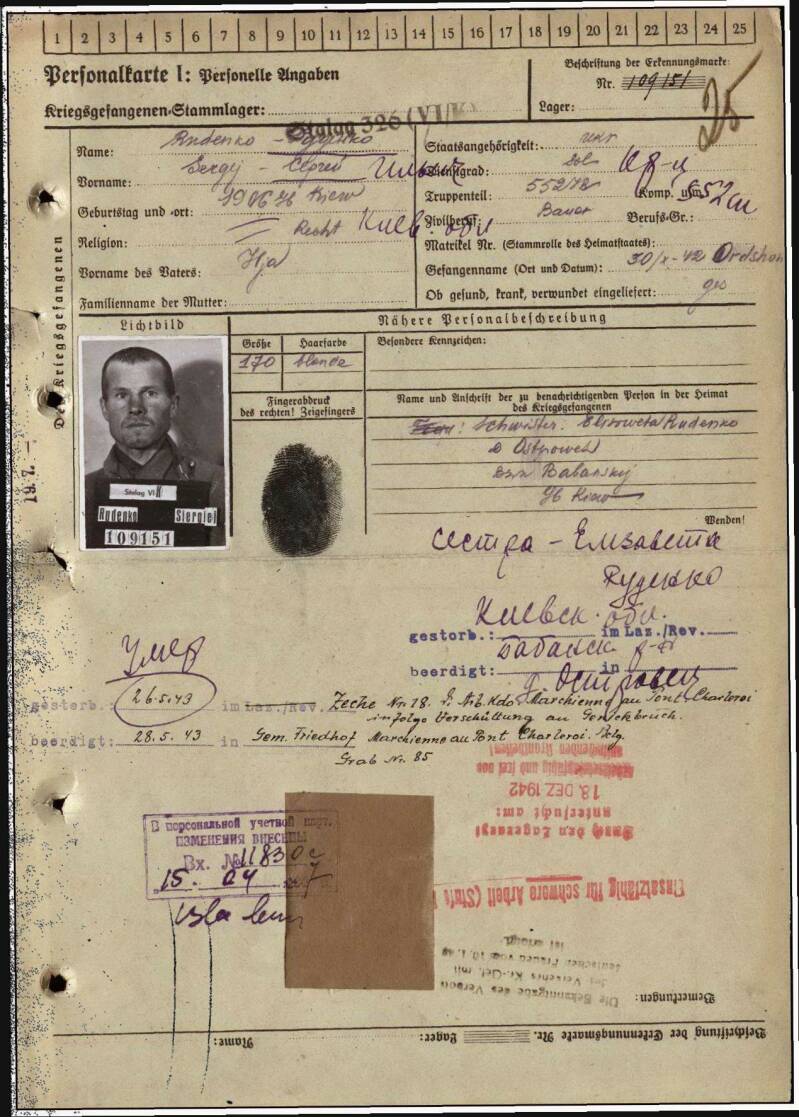 1 2 3 4 5 6 7 8 9 10 11 12 13 14 15 16 17 18 19 20 21 22 23 24 25
Personalkarte I: Personelle Angaben
Beschriftung der Erkennungsmarke:
Nr. 109151
Kriegsgefangenen-Stammlager: Stalag 326 (VI/K)
Lager:
25
Des Kriegsgefangenen
Name: Rudenko - Руденко
Vorname: Sergij - Сергей Ильич
Geburtstag und -ort: 1906 Kiew
Киев. обл
Religion:
Vorname des Vaters: Ilja
Familienname der Mutter:
Staatsangehörigkeit: ukr
Dienstgrad: Sol
Truppenteil: 552/78 Komp. usw.
552
Zivilberuf: Bauer Berufs-Gr.:
Matrikel Nr. (Stammrolle des Heimatstaates):
Gefangenname (Ort und Datum): 30/X-42 Ordshon
Ob gesund, krank, verwundet eingeliefert: ges
Lichtbild
Nähere Personalbeschreibung
Größe Haarfarbe
170 blonde
Besondere Kennzeichen:
Fingerabdruck
des rechten! Zeigefingers
Name und Anschrift der zu benachrichtigenden Person in der Heimat
des Kriegsgefangenen
Schwester. Elisaweta Rudenko
Babanskij
Kiew
Stalag VI
Rudenko Siergiej
109151
19.7.
Wenden!
сестра - Елизавета
Руденко
Киевск. обл.
gestorb.: im Laz./Rev.
Бабанск. р-н
beerdigt: in
д. Островец
Умер
gestorb.: 26.5.43 im Laz./Rev. Zeche Nr. 18. Arb. Kdo. Marchienne au Pont Charleroi
infolge Verschüttung an Genickbruch.
beerdigt: 28.5.43 in Gem. Friedhof Marchienne au Pont Charleroi. Belg.
Grab Nr. 85
ansteckenden Krankheiten
und frei von
18. DEZ. 1942
untersucht am:
Durch den Lagerarzt
В персональной учетной карт.
ИЗМЕНЕНИЯ ВНЕСЕНЫ
Вх. № 11830с
"15. 04
Einsatzfähig für schwere Arbeit (Stufe
ist erfolgt.
deutschen Frauen vom 10.1.
des Verkehrs Kr.-Gef. mit
Die Bekanntgabe des Verbots
Bemerkungen:
Beschriftung der Erkennungsmarke Nr. Lager: Name: